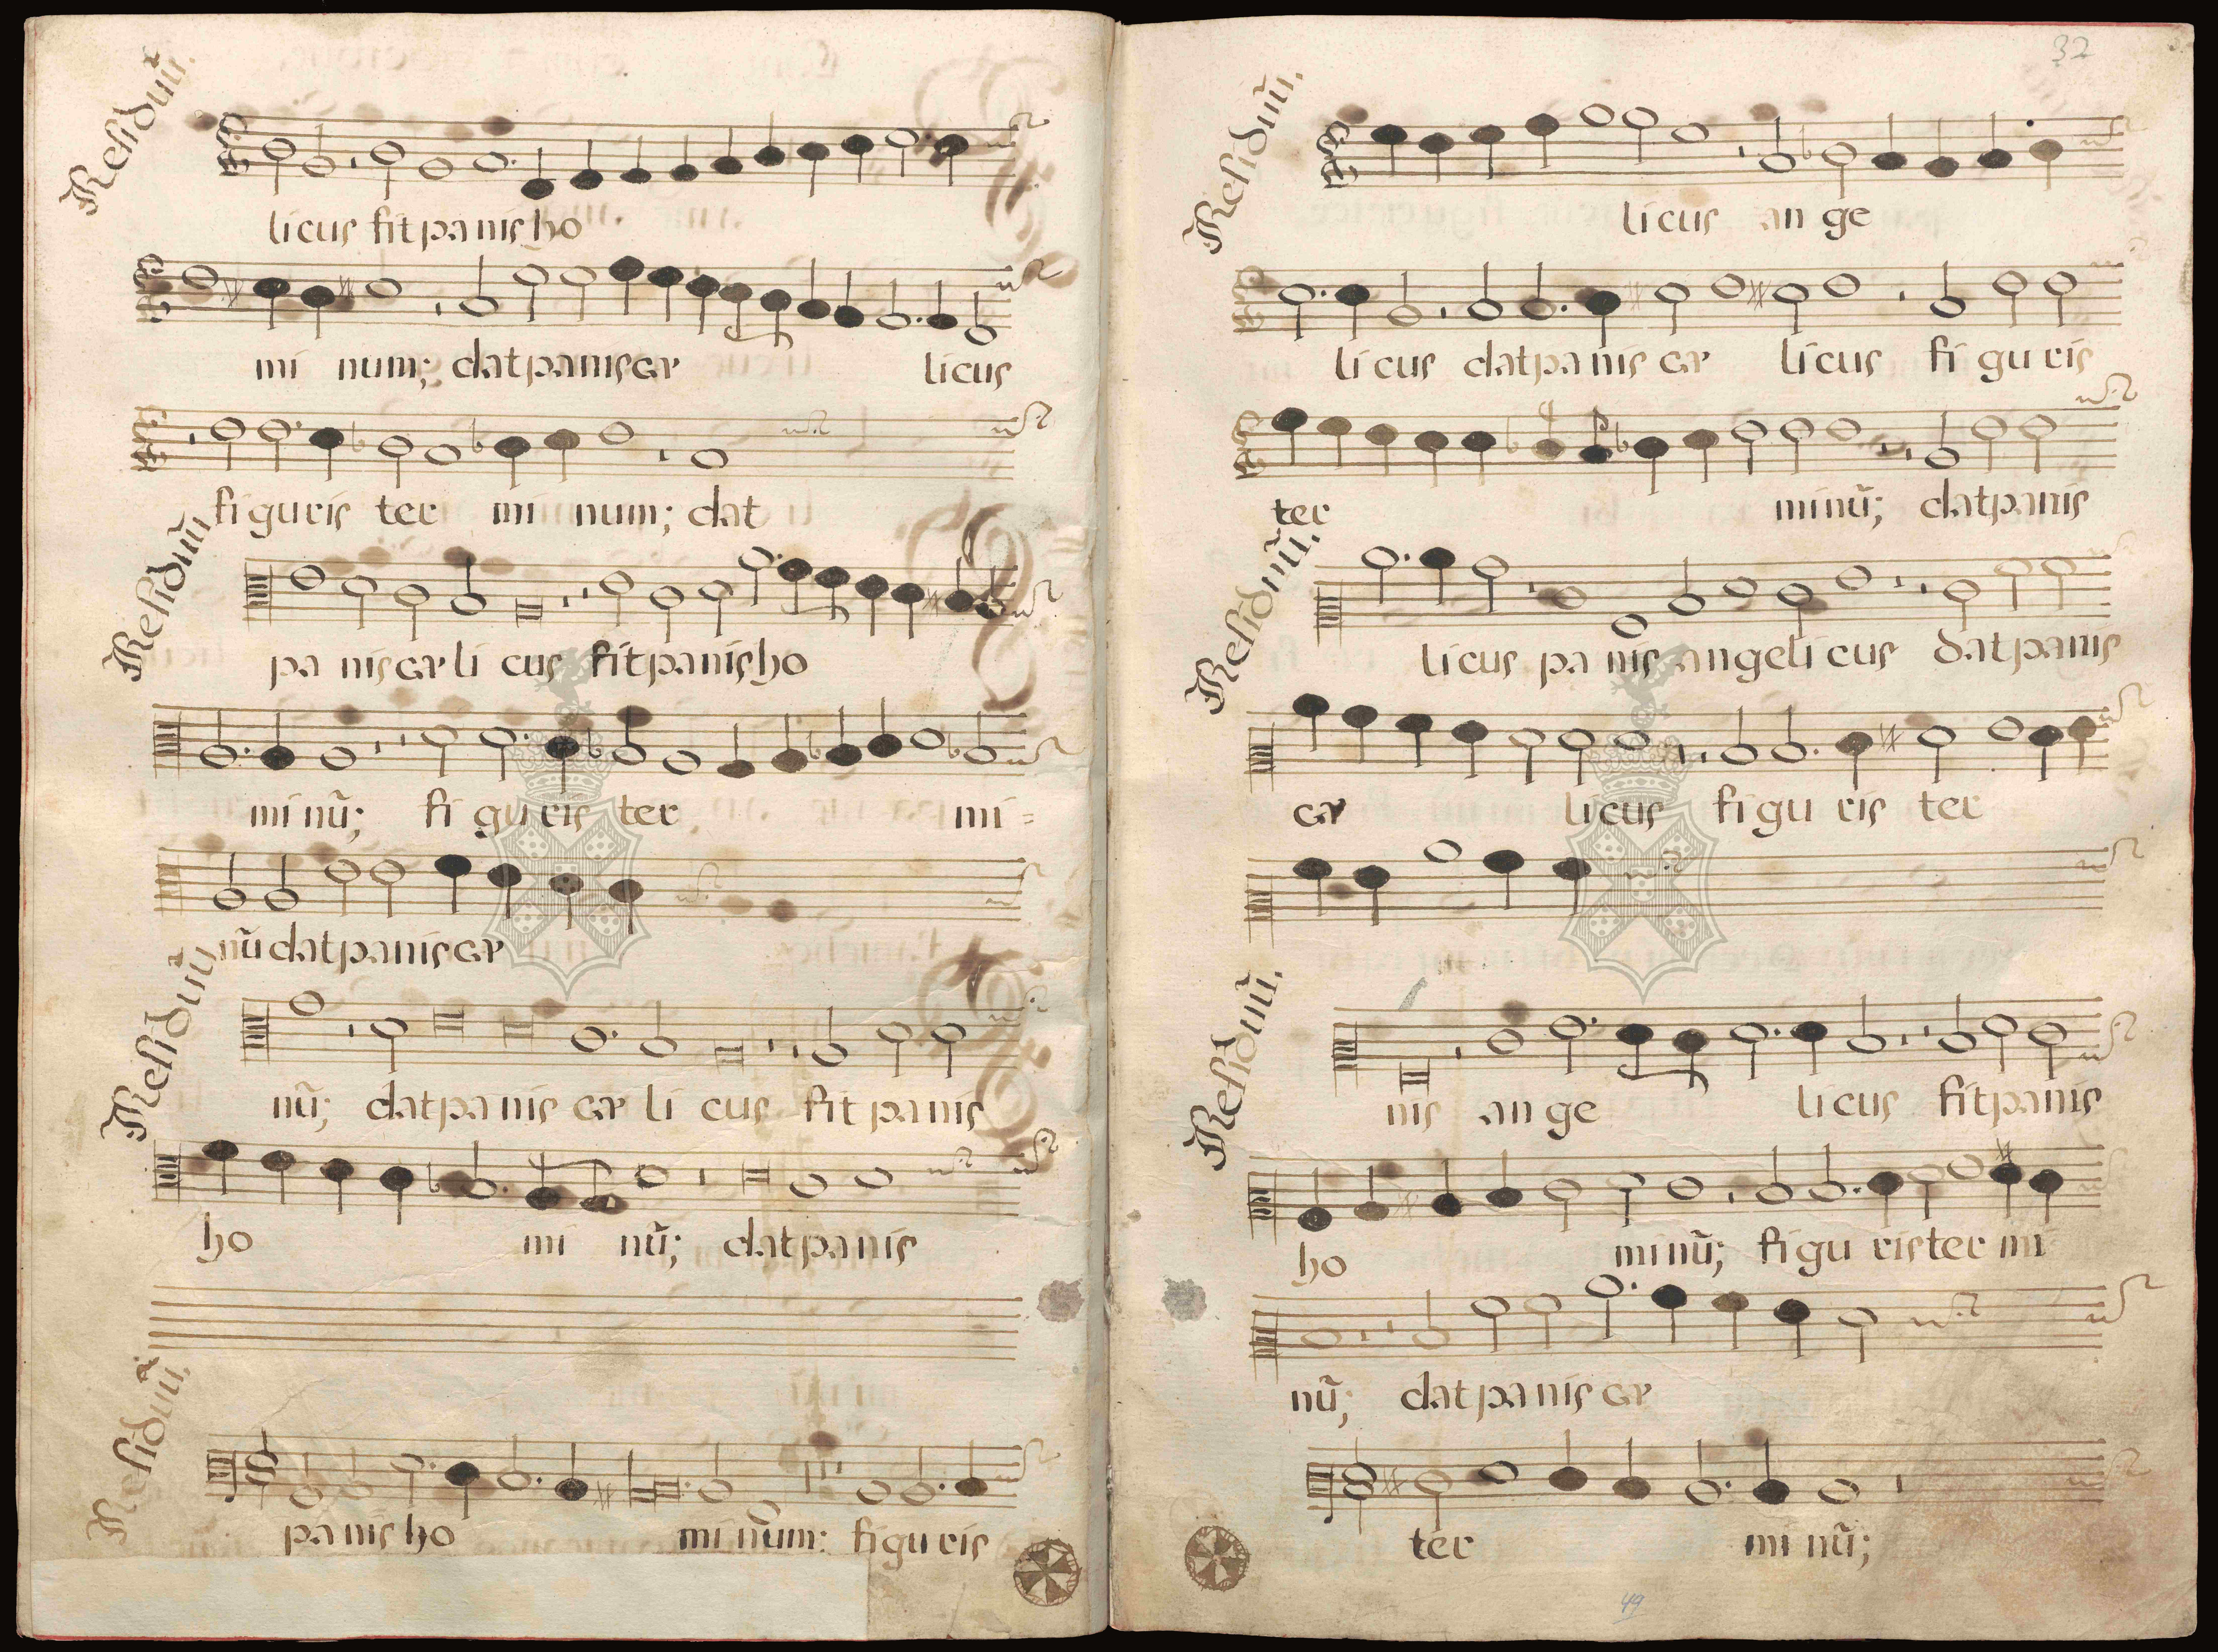 Residuũ.
licus fit panis ho
mi num; dat panis cæ licus
figuris ter mi num; dat
Residuũ
pa nis cæ li cus fit panis ho
mi nũ; fi gu ris ter mi=
nũ dat panis cæ
Residuũ
nũ; dat pa nis cæ li cus fit panis
ho mi nũ; dat panis
Residuũ.
pa nis ho mi num: figu ris
32
Residuũ.
li cus an ge
li cus dat pa nis cæ li cus fi gu ris
ter mi nũ; dat panis
Residuũ.
li cus pa nis angeli cus dat panis
cæ li cus fi gu ris ter
Residuũ.
nis an ge li cus fit panis
ho mi nũ; fi gu ris ter mi
nũ; dat pa nis cæ
ter mi nũ;
49